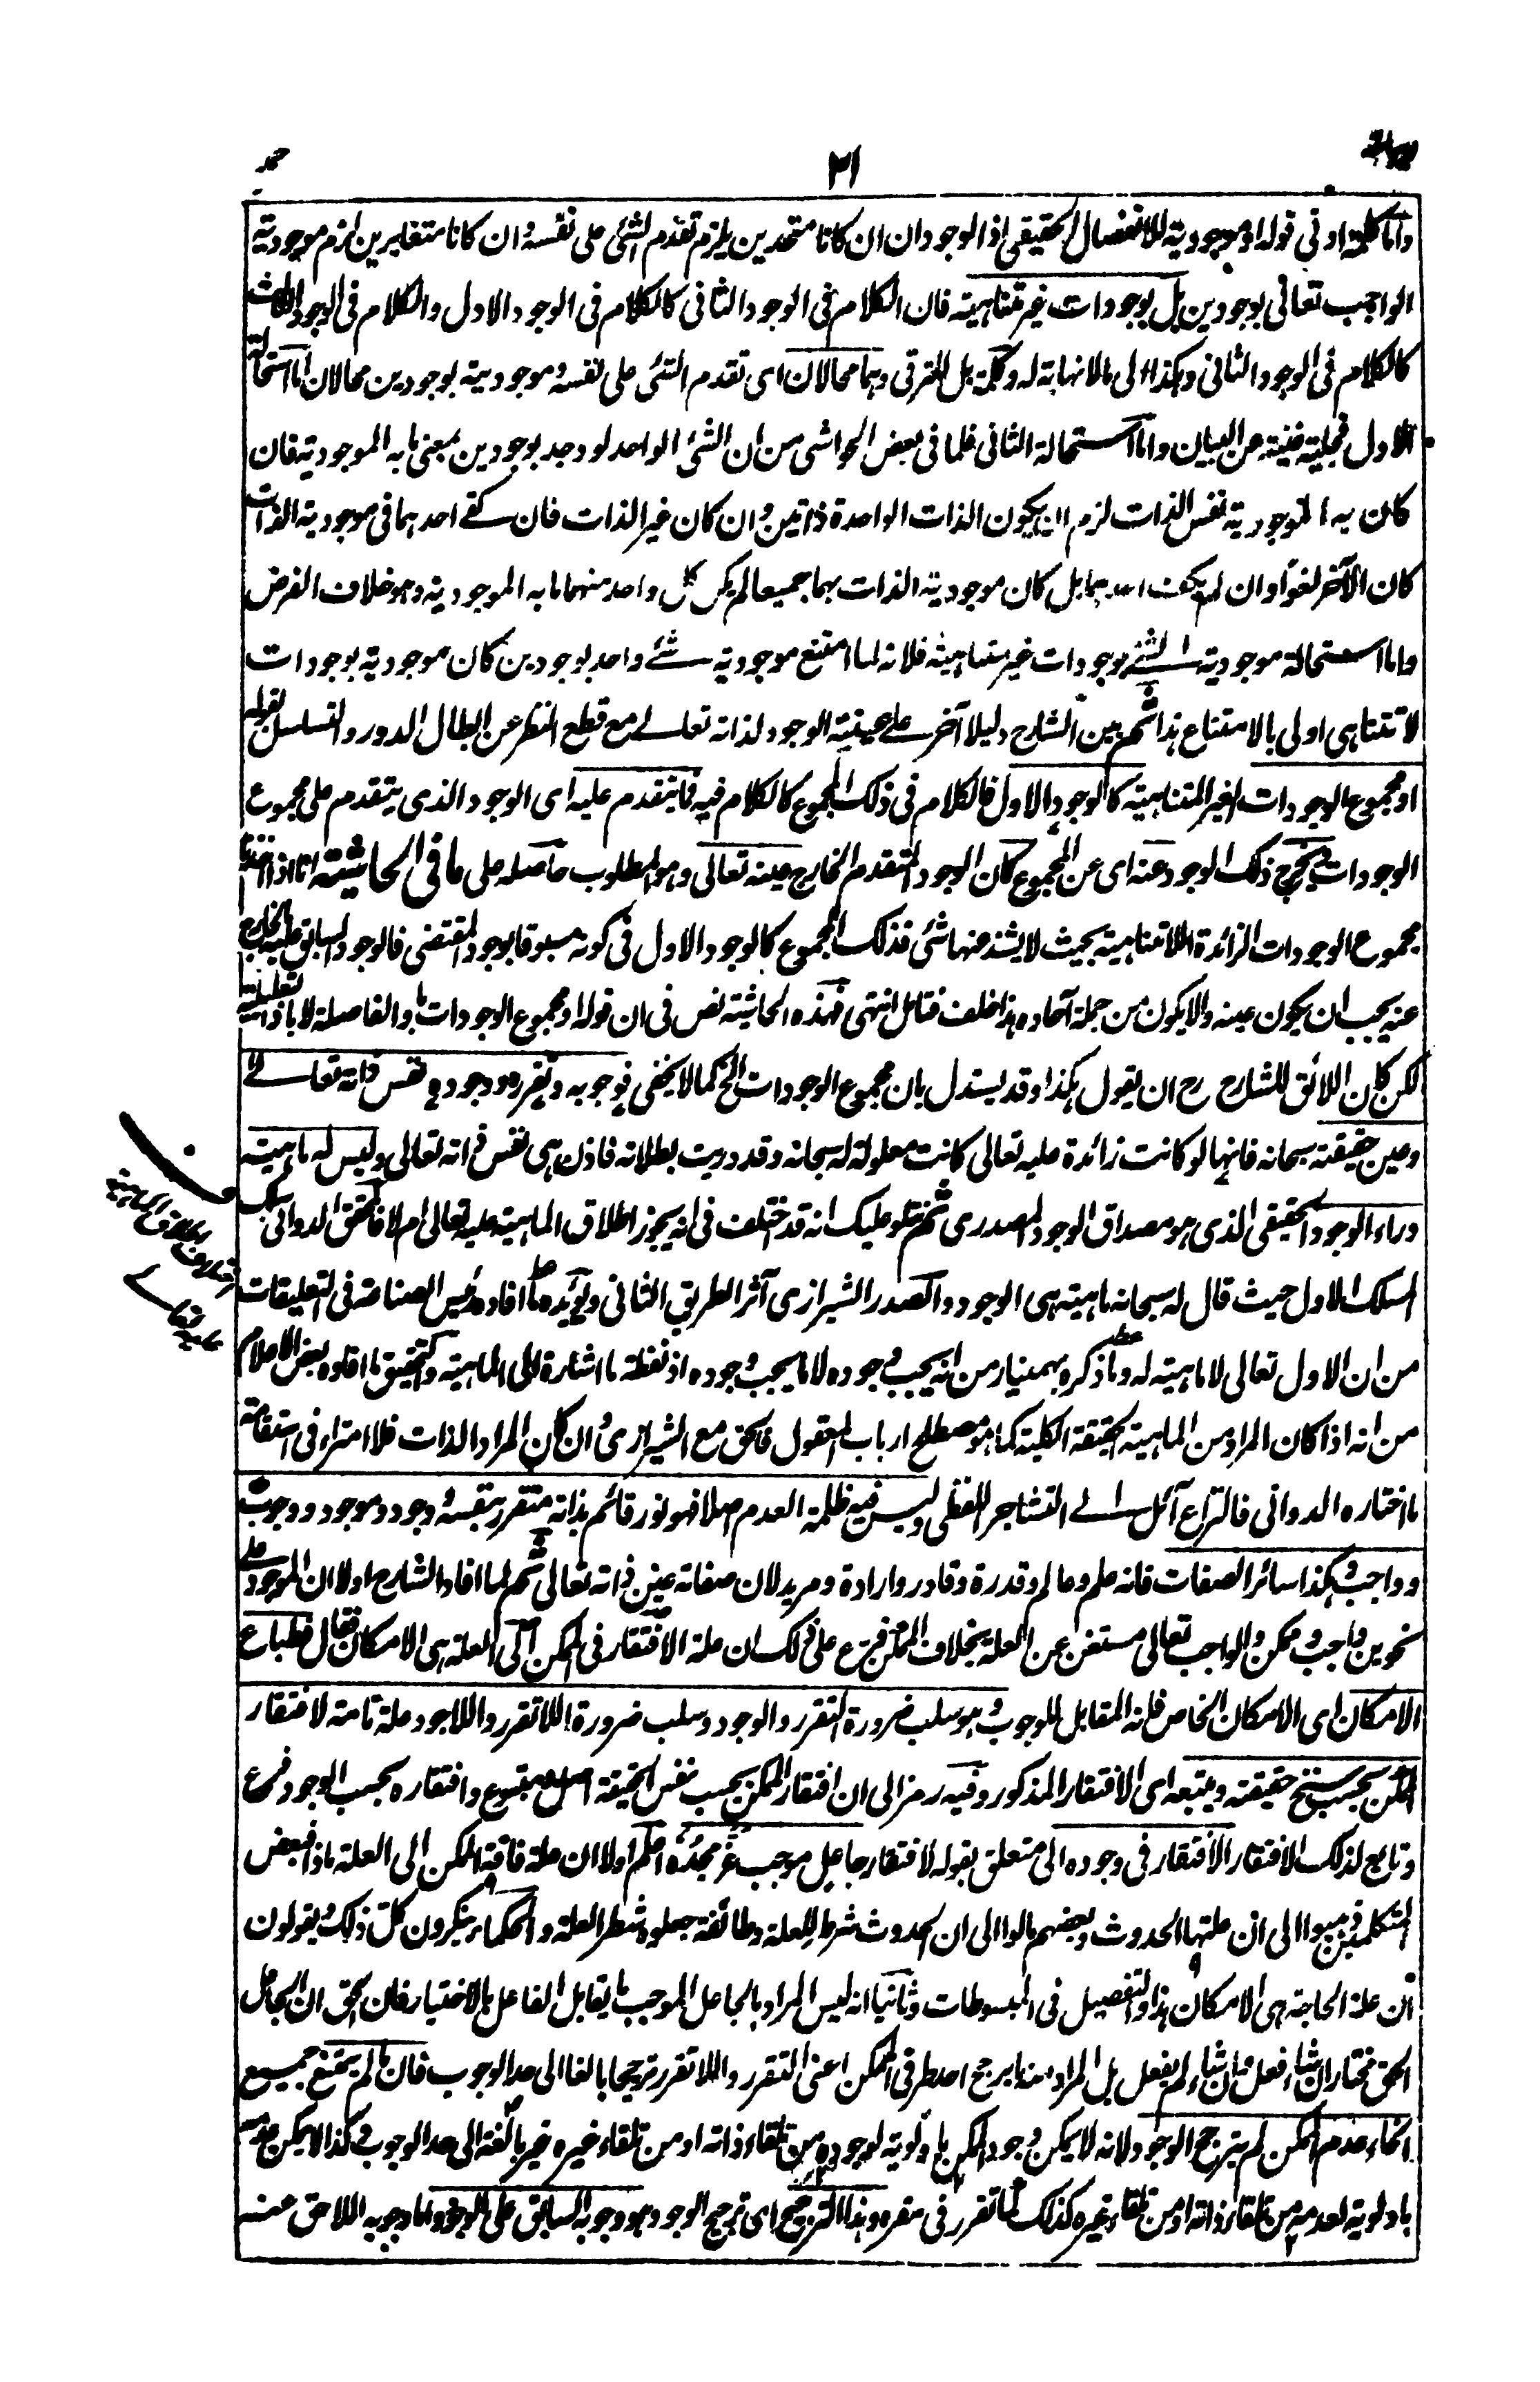 ٢١
واما كلمة او فى قوله او موجودية للانفصال الحقيقى اذ الوجودان ان كانا متحدين يلزم تقدم الشئ على نفسه وان كانا متغايرين لزم موجودية
الواجب تعالى بوجودين بل بوجودات غير متناهية فان الكلام فى الوجود الثانى كالكلام فى الوجود الاول والكلام فى الوجود الثالث
كالكلام فى الوجود الثانى وهكذا الى مالانهاية له وكلمة بل للترقى وهما محالان اى تقدم الشئ على نفسه وموجودية بوجودين محالان اما استحالة
الاول فجلية غنية عن البيان واما استحالة الثانى فلما فى بعض الحواشى من ان الشئ الواحد لو وجد بوجودين بمعنى ما به الموجودية فان
كان به الموجودية نفس الذات لزم ان يكون الذات الواحدة ذاتين وان كان غير الذات فان كفى احدهما فى موجودية الذات
كان الآخر لغوا وان لم يكف احدهما بل كان موجودية الذات بهما جميعا لم يكن كل واحد منهما ما به الموجودية وهو خلاف الفرض
واما استحالة موجودية الشئ بوجودات غير متناهية فلانه لما امتنع موجودية شئ واحد بوجودين كان موجودية بوجودات
لا تتناهى اولى بالامتناع هذا ثم بين الشارح دليلا آخر على عينية الوجود لذاته تعالى مع قطع النظر عن ابطال الدور والتسلسل بقوله
او مجموع الوجودات الغير المتناهية كالوجود الاول فالكلام فى ذلك المجموع كالكلام فيه فما يتقدم عليه اى الوجود الذى يتقدم على مجموع
الوجودات يخرج ذلك الوجود عنه اى عن المجموع كان الوجود المتقدم الخارج عينه تعالى وهو المطلوب حاصله على ما فى الحاشية انا اذا اخذنا
مجموع الوجودات الزائدة اللامتناهية بحيث لا يشذ عنها شئ فذلك المجموع كالوجود الاول فى كونه مسبوقا بوجود المقتضى فالوجود السابق عليه الخارج
عنه يجب ان يكون عينه والا يكون من جملة آحاده هذا خلف فتامل انتهى فهذه الحاشية نص فى ان قوله او مجموع الوجودات باو الفاصلة لا باذ التعليلية
لكن كان اللائق للشارح رح ان يقول هكذا وقد يستدل بان مجموع الوجودات الخ كما لا يخفى فوجوبه وتقرره ووجوده نفس ذاته تعالى
وعين حقيقته سبحانه فانها لو كانت زائدة عليه تعالى كانت معلولة له سبحانه وقد دريت بطلانه فاذن هى نفس ذاته تعالى وليس له ماهية
وراء الوجود الحقيقى الذى هو مصداق الوجود المصدرى ثم نتلو عليك انه قد اختلف فى انه يجوز اطلاق الماهية عليه تعالى ام لا فالمحقق الدوانى سلك
المسلك الاول حيث قال له سبحانه ماهية هى الوجود والصدر الشيرازى آثر الطريق الثانى ويؤيده ما افاده رئيس الصناعة فى التعليقات
من ان الاول تعالى لا ماهية له وما ذكره بهمنيار من انه يجب وجوده لا ما يجب وجوده اذ لفظة ما اشارة الى الماهية والتحقيق ما افاده بعض الاعلام
من انه اذا كان المراد من الماهية الحقيقة الكلية كما هو مصطلح ارباب المعقول فالحق مع الشيرازى وان كان المراد الذات فلا امتراء فى استقامة
ما اختاره الدوانى فالنزاع آئل الى التشاجر اللفظى وليس فيه ظلمة العدم اصلا فهو نور قائم بذاته متقرر بنفسه وجود وموجود ووجوب
وواجب وهكذا سائر الصفات فانه علم وعالم وقدرة وقادر وارادة ومريد لان صفاته عين ذاته تعالى ثم لما افاد الشارح اولا ان الموجود على
نحوين واجب وممكن والواجب تعالى مستغن عن العلة بخلاف الممكن فرع على ذلك ان علة الافتقار فى الممكن الى العلة هى الامكان فقال فطباع
الامكان اى الامكان الخاص فانه المقابل للوجوب وهو سلب ضرورة التقرر والوجود وسلب ضرورة اللاتقرر واللاوجود علة تامة لافتقار
الممكن بحسب سنخ حقيقته ويتبعه اى الافتقار المذكور وفيه رمز الى ان افتقار الممكن بحسب نفس الحقيقة اصل ومتبوع وافتقاره بحسب الوجود فرع
وتابع لذلك الافتقار الافتقار فى وجوده الى متعلق بقوله لافتقار جاعل موجب عز مجده اعلم اولا ان علة فاقة الممكن الى العلة ماذا فبعض
المتكلمين ذهبوا الى ان علتها الحدوث وبعضهم مالوا الى ان الحدوث شرط للعلة وطائفة جعلوه شطر العلة والحكماء ينكرون كل ذلك ويقولون
ان علة الحاجة هى الامكان هذا والتفصيل فى المبسوطات وثانيا انه ليس المراد بالجاعل الموجب ما يقابل الفاعل بالاختيار فان الحق ان الجاعل
الحق مختار ان شاء فعل وان شاء لم يفعل بل المراد هنا ما يرجح احد طرفى الممكن اعنى التقرر واللاتقرر ترجيحا بالغا الى حد الوجوب فان ما لم يمتنع جميع
انحاء عدم الممكن لم يترجح الوجود لانه لا يمكن وجود الممكن باولوية لوجوده من تلقاء ذاته او من تلقاء غيره غير بالغة الى حد الوجوب وكذا لا يمكن عدمه
باولوية لعدمه من تلقاء ذاته او من تلقاء غيره كذلك لما تقرر فى مقره وهذا الترجيح اى ترجيح الوجود هو وجوبه السابق على الوجود واما وجوبه اللاحق عنه